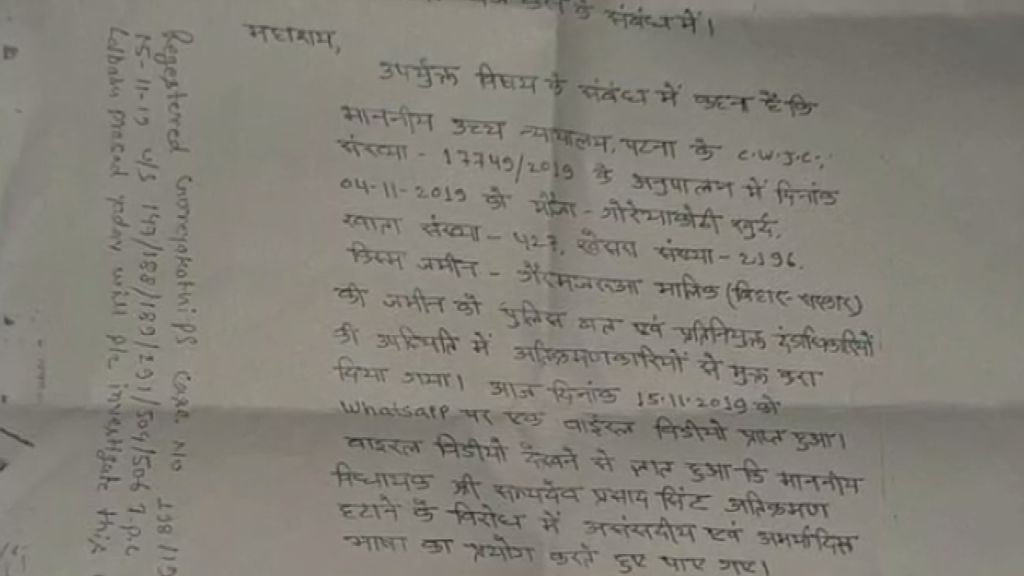 के संबंध में।
महाशय,
उपर्युक्त विषय के संबंध में कहना है कि
माननीय उच्च न्यायालय, पटना के C.W.J.C.,
संख्या - 17749/2019 के अनुपालन में दिनांक
04-11-2019 को मौजा - गोरेयाकोठी खुर्द,
खाता संख्या - 427, खेसरा संख्या - 2196,
किस्म जमीन - गैरमजरुआ मालिक (बिहार-सरकार)
की जमीन को पुलिस बल एवं प्रतिनियुक्त दंडाधिकारियों
की उपस्थिति में अतिक्रमणकारियों से मुक्त करा
दिया गया। आज दिनांक 15.11.2019 को
Whatsapp पर एक वाईरल विडीयो प्राप्त हुआ।
वाइरल विडीयो देखने से ज्ञात हुआ कि माननीय
विधायक श्री सत्यदेव प्रसाद सिंह अतिक्रमण
हटाने के विरोध में असंसदीय एवं अमर्यादित
भाषा का प्रयोग करते हुए पाए गए।
Regestered Gnoreyakothi PS Case No 198/19
15-11-19 u/s 147/188/189/291/504/506 I.P.C
Lalbabu prasad yadav will plz investgate this